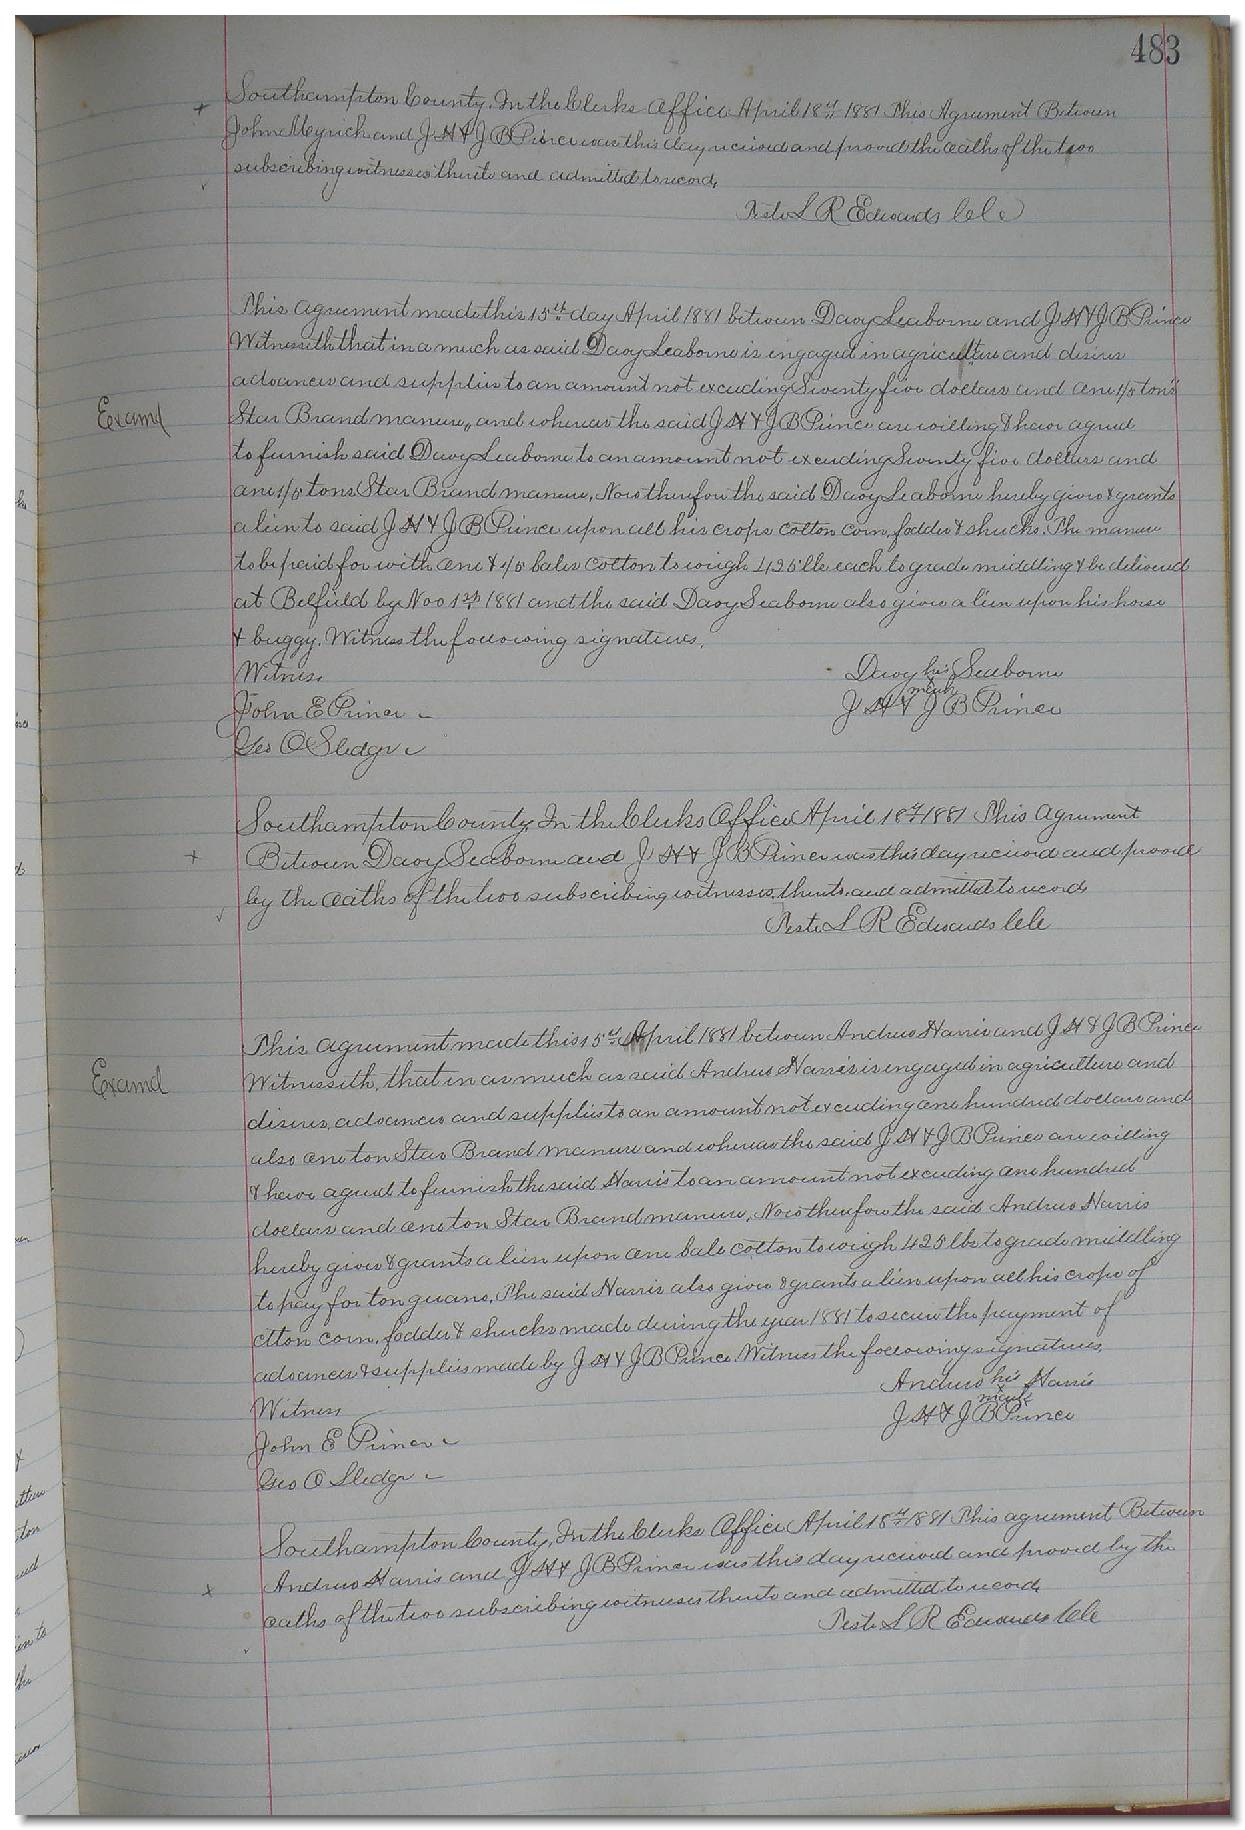 483
Southampton County. In the Clerks Office April 18th 1881 This Agreement Between
John Meyrick and J H & J B Prince was this day received and proved the oaths of the two
subscribing witnesses thereto and admitted to record.
Teste L R Edwards Clk
This agreement made this 15th day April 1881 between Davy Seaborne and J H & J B Prince
Witnesseth that in a much as said Davy Seaborne is engaged in agriculture and desires
advances and supplies to an amount not exceeding Seventy five dollars and one 1/5 tons
Examd
Star Brand manure, and whereas the said J H & J B Prince are willing & have agreed
to furnish said Davy Seaborne to an amount not exceeding Seventy five dollars and
one 1/5 tons Star Brand manure, Now therefore the said Davy Seaborne hereby gives & grants
a lien to said J H & J B Prince upon all his crops cotton corn, fodder & shucks. The manure
to be paid for with one & 1/5 bales cotton to weigh 425 lbs each to grade middling & be delivered
at Belfield by Nov 1st 1881 and the said Davy Seaborne also gives a lien upon his horse
& buggy. Witness the following signatures.
Witness
Davy his Seaborne
mark
John E Prince
J H & J B Prince
Geo O Sledge
Southampton County In the Clerks Office April 18th 1881 This Agreement
Between Davy Seaborne and J H & J B Prince was this day received and proved
by the oaths of the two subscribing witnesses thereto and admitted to record
Teste L R Edwards Clk
This agreement made this 15th April 1881 between Andrew Harris and J H & J B Prince
Examd
Witnesseth, that in as much as said Andrew Harris is engaged in agriculture and
desires, advances and supplies to an amount not exceeding one hundred dollars and
also one ton Star Brand manure and whereas the said J H & J B Prince are willing
& have agreed to furnish the said Harris to an amount not exceeding one hundred
dollars and one ton Star Brand manure, Now therefore the said Andrew Harris
hereby gives & grants a lien upon one bale cotton to weigh 425 lbs to grade middling
to pay for ton guano, The said Harris also gives & grants a lien upon all his crops of
ctton corn, fodder & shucks made during the year 1881 to secure the payment of
advances & supplies made by J H & J B Prince Witness the following signatures.
Andrew his Harris
x
mark
Witness
J H & J B Prince
John E Prince
Geo O Sledge
Southampton County, In the Clerks Office April 18th 1881 This agreement Between
Andrew Harris and J H & J B Prince was this day received and proved by the
oaths of the two subscribing witnesses thereto and admitted to record,
Teste L R Edwards Clk